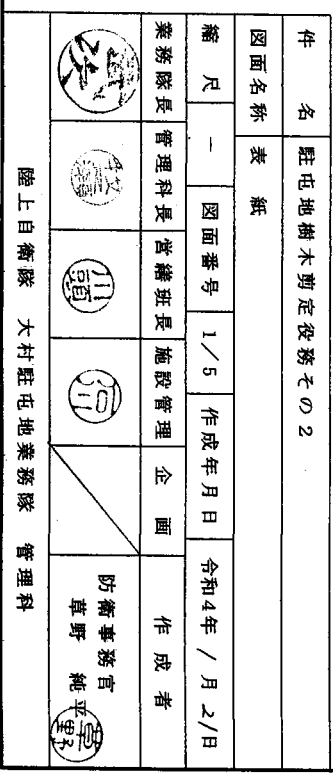 件　名　駐屯地樹木剪定役務その2
図面名称　表紙
縮尺　―　図面番号　1／5　作成年月日　令和4年 1月21日
業務隊長　管理科長　営繕班長　施設管理　企画　作成者
川頭
防衛事務官
草野　純平
草野
陸上自衛隊　大村駐屯地業務隊　管理科